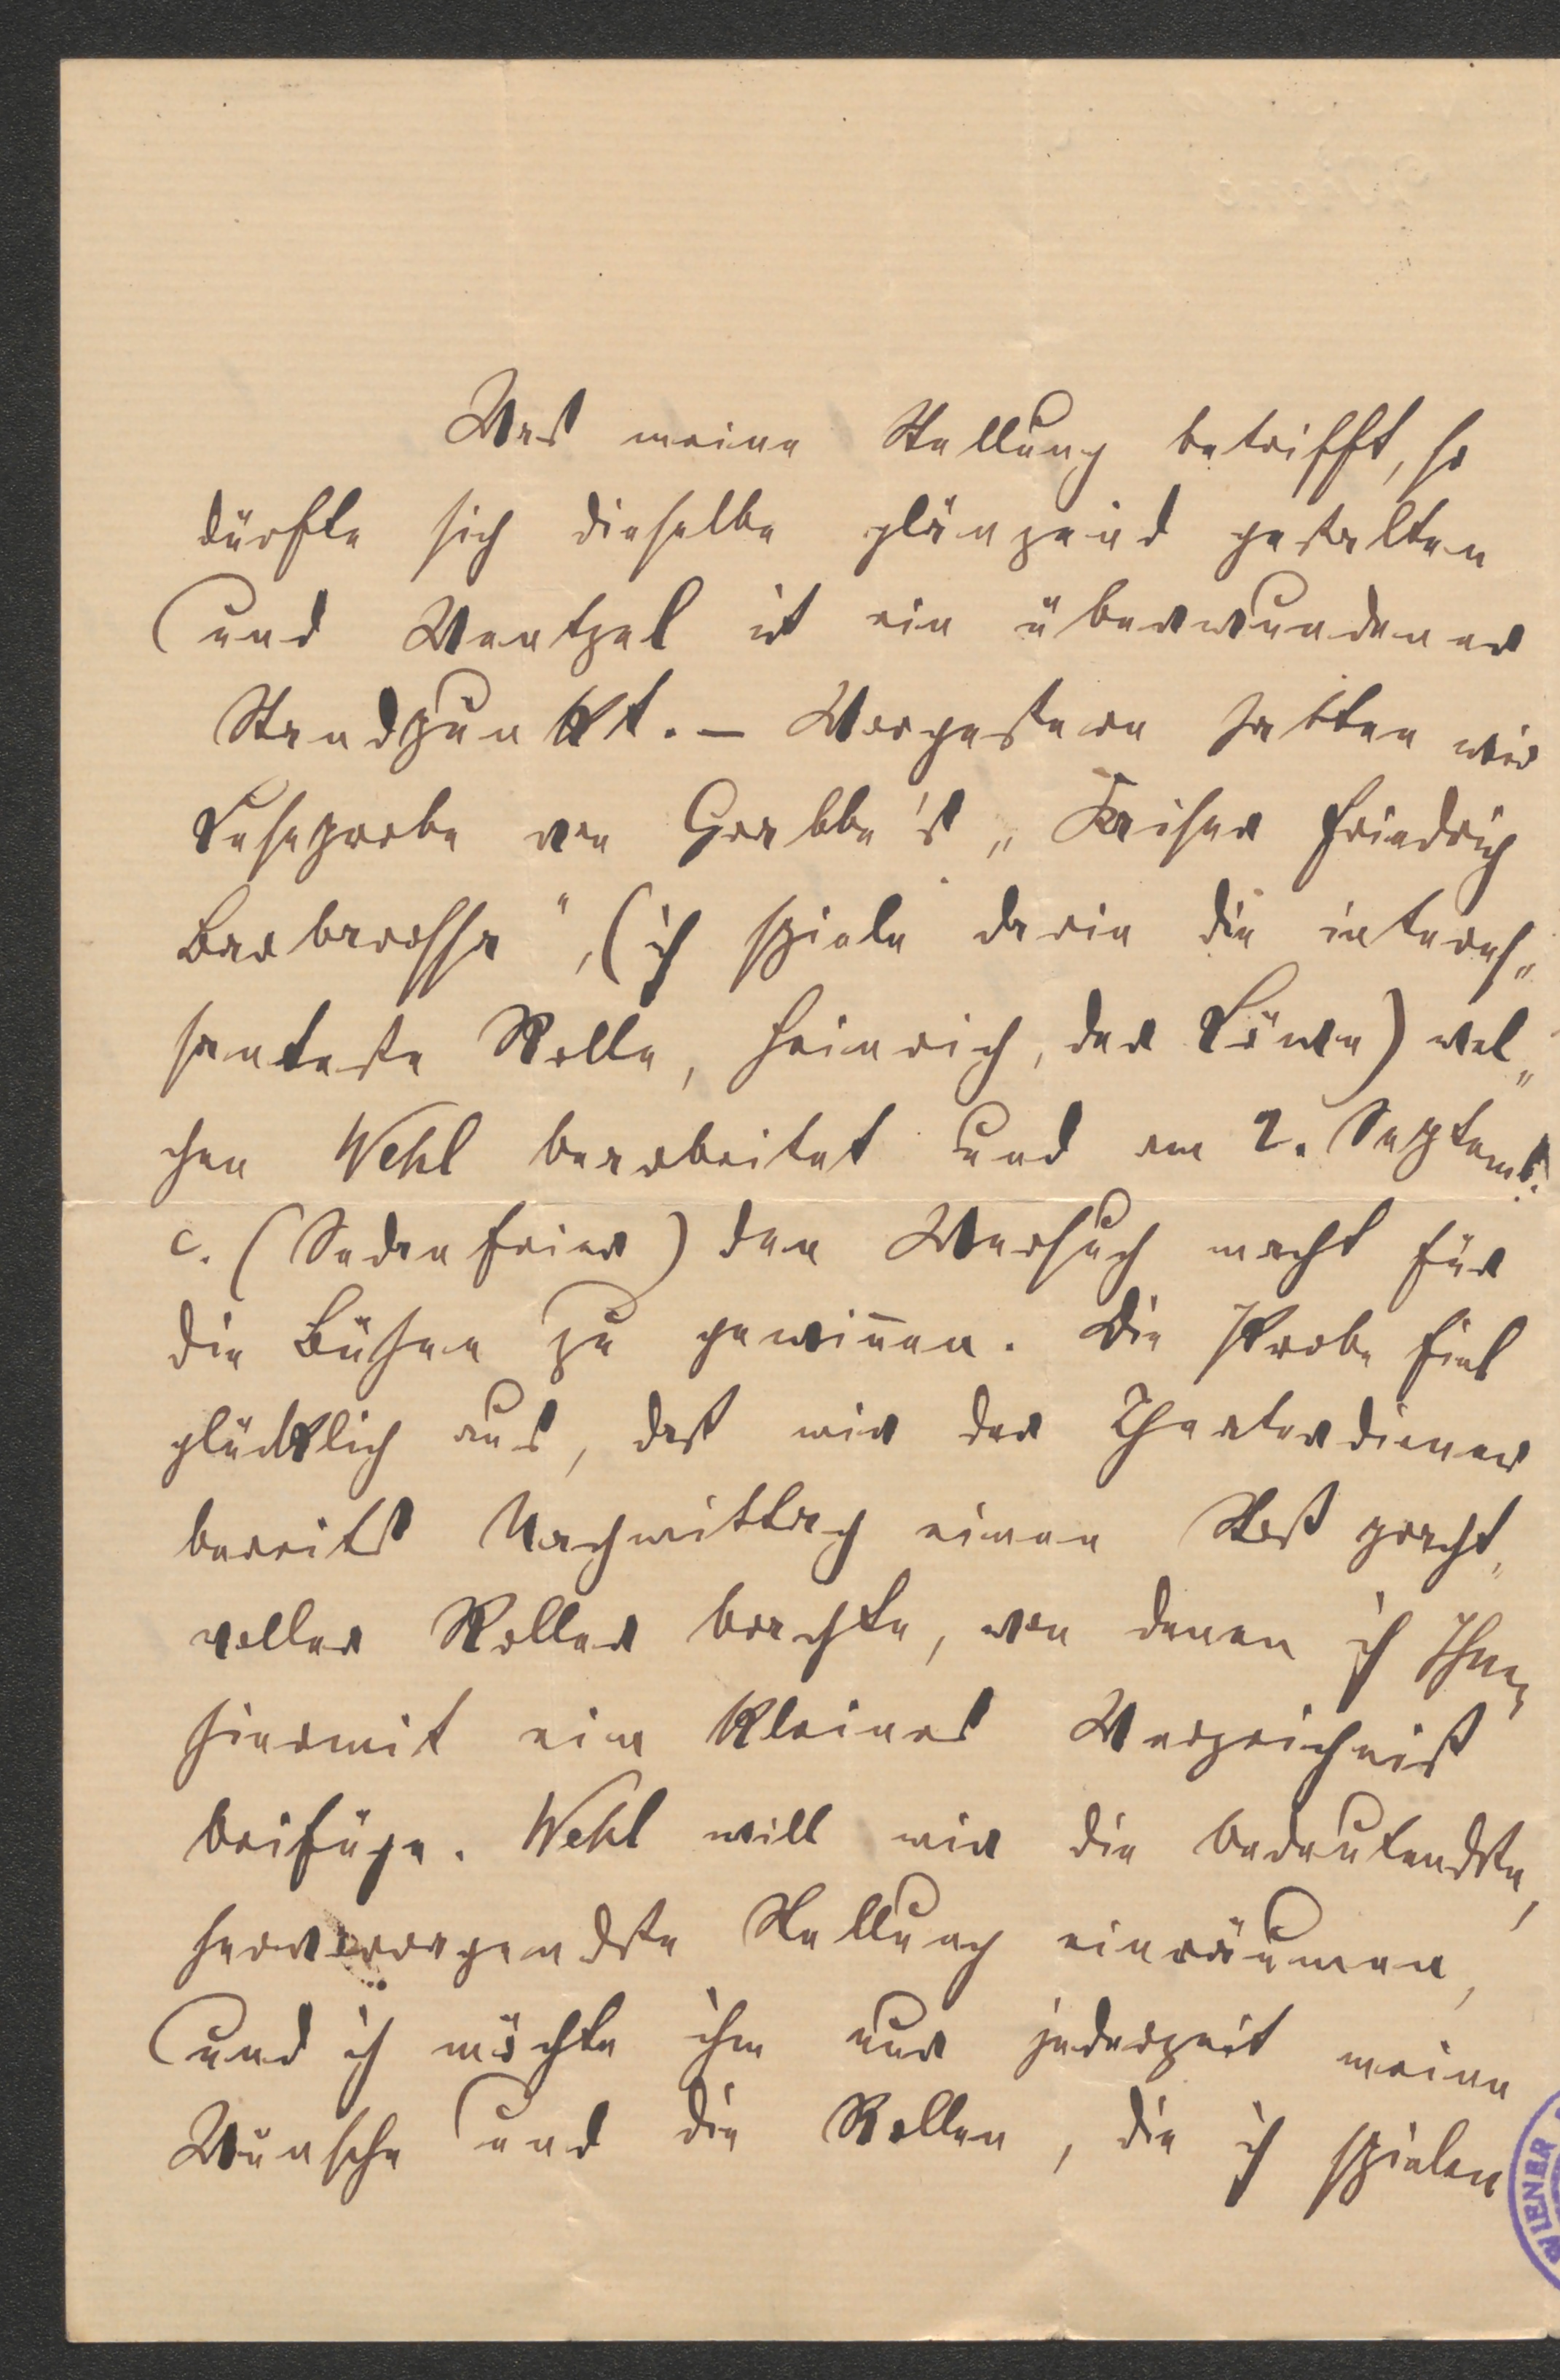 Was meine Stellung betrifft, so
dürfte sich dieselbe glänzend gestalten
und Wentzel ist ein überwundener
Standpunkt. – Vorgestern hatten wir
Leseprobe von Grabbe's „Kaiser Friedrich
Barbarossa", (ich spiele darin die interes„
santeste Rolle, Heinrich, der Löwe) wel„
chen Wehl bearbeitet und am 2. Septemb.
c. (Sedanfeier) den Versuch macht für
die Bühne zu gewinnen. Die Probe fiel
glücklich aus, daß mir der Theaterdiener
bereits Nachmittag einen Stoß pracht„
voller Rollen brachte, von denen ich Ihnen
hiermit ein kleines Verzeichniß
beifüge. Wehl will mir die bedeutendste,
hervorragendste Stellung einräumen,
und ich möchte ihm nur jederzeit meine
Wünsche und die Rollen, die ich spielen
WIENER